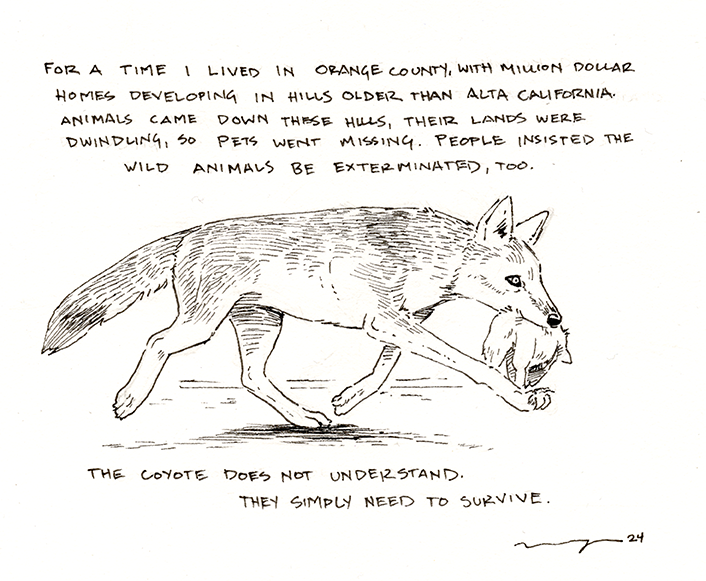 FOR A TIME I LIVED IN ORANGE COUNTY, WITH MILLION DOLLAR
HOMES DEVELOPING IN HILLS OLDER THAN ALTA CALIFORNIA.
ANIMALS CAME DOWN THESE HILLS, THEIR LANDS WERE
DWINDLING, SO PETS WENT MISSING. PEOPLE INSISTED THE
WILD ANIMALS BE EXTERMINATED, TOO.
THE COYOTE DOES NOT UNDERSTAND.
THEY SIMPLY NEED TO SURVIVE.
24